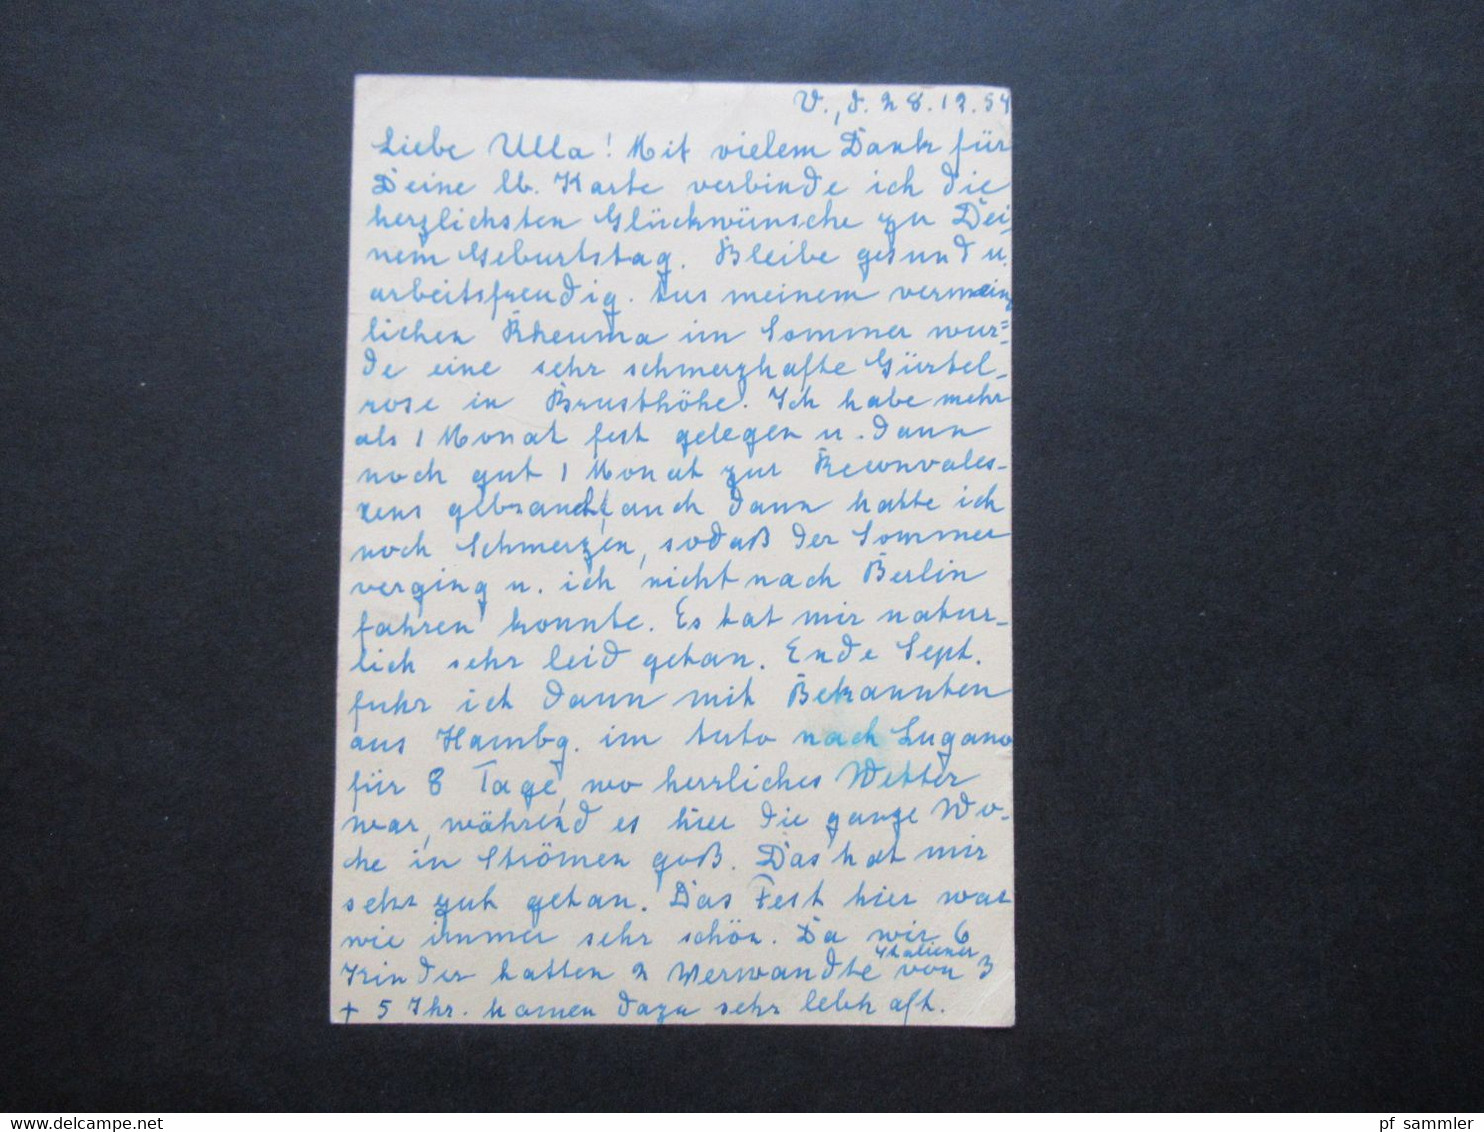 V., d. 28.12.54
Liebe Ulla! Mit vielem Dank für
Deine lb. Karte verbinde ich die
herzlichsten Glückwünsche zu Dei-
nem Geburtstag. Bleibe gesund u.
arbeitsfreudig. Aus meinem vermeint-
lichen Rheuma im Sommer wur=
de eine sehr schmerzhafte Gürtel-
rose in Brusthöhe. Ich habe mehr
als 1 Monat fest gelegen u. dann
noch gut 1 Monat zur Rekonvales-
zens gebraucht, auch dann hatte ich
noch Schmerzen, sodaß der Sommer
verging u. ich nicht nach Berlin
fahren konnte. Es tat mir natur-
lich sehr leid getan. Ende Sept.
fuhr ich dann mit Bekannten
aus Hambg. im Auto nach Lugano
für 8 Tage, wo herrliches Wetter
war, während es hier die ganze Wo-
che in Strömen goß. Das hat mir
sehr gut getan. Das Fest hier war
wie immer sehr schön. Da wir 6
Kinder hatten 2 Verwandte Italiener von 3
+ 5 Jhr. kamen dazu sehr lebhaft.
www.delcampe.net
pf_sammler